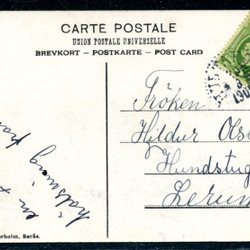 CARTE POSTALE
UNION POSTALE UNIVERSELLE
BREVKORT - POSTKARTE - POST CARD
Fröken
Hildur Ols
Hundstug
Lerum
en +
hälsning från
erholm, Borås.
190